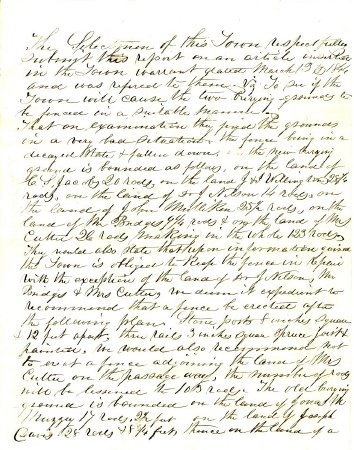 The Selectmen of this Town respectfully
submit this report on an article inserted
in the Town warrant dated March 13
and was refered to them. Viz To see if the
Town will cause the two burying grounds to
be fenced in a suitable manner
That on examination they find the grounds
in a very bad situation, the fence being in a
decayed state & fallen down, the new burying
ground is bounded as follows, on the land of
20 rods, on the land of
rods, on the land of Nelson 14 rods, on
the land of John rods, on the
land of Mr Bridges rods & on the land of Mrs
Cutter 26 rods making in the whole 123 rods
They would also state that upon information gained
this Town is obliged to keep the fence in repair
with the exception of the land of Nelson, Mr
Bridges & Mrs Cutter, we deem it expedient to
recommend that a fence be erected after
the following plan. Stone posts 8 inches square
& 12 feet apart, three rails 3 inches square spruce
painted, we would also recommend not
to erect a fence adjoining the land of Mrs
Cutter on the passage way, the number of rods
will be lessened to rods. The old burying
ground is bounded on the land of
17 rods, feet on the land of Joseph
Davis 28 rods & feet, thence on the land of a